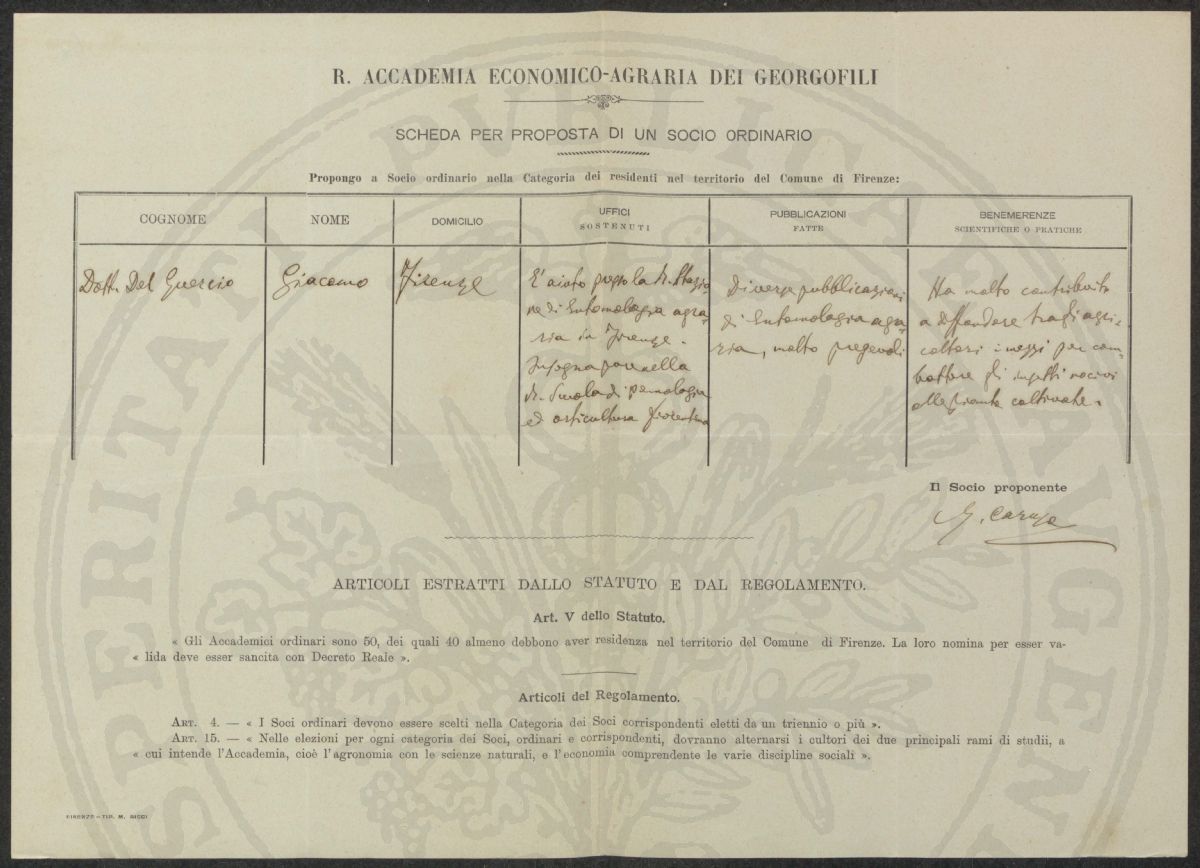 R. ACCADEMIA ECONOMICO-AGRARIA DEI GEORGOFILI
SCHEDA PER PROPOSTA DI UN SOCIO ORDINARIO
Propongo a Socio ordinario nella Categoria dei residenti nel territorio del Comune di Firenze:
COGNOME
NOME
DOMICILIO
UFFICI
SOSTENUTI
PUBBLICAZIONI
FATTE
BENEMERENZE
SCIENTIFICHE O PRATICHE
Dott. Del Guercio
Giacomo
Firenze
E' aiuto presso la R. Stazio
ne di Entomologia agra-
ria in Firenze.
Insegna pure nella
R. Scuola di pomologia
ed orticultura fiorentina
Diverse pubblicazioni
di Entomologia agra-
ria, molto pregevoli
Ha molto contribuito
a diffondere tra gli agri-
coltori i mezzi per com-
battere gli insetti nocivi
alle piante coltivate.
Il Socio proponente
G. Caruso
ARTICOLI ESTRATTI DALLO STATUTO E DAL REGOLAMENTO.
Art. V dello Statuto.
« Gli Accademici ordinari sono 50, dei quali 40 almeno debbono aver residenza nel territorio del Comune di Firenze. La loro nomina per esser va-
« lida deve esser sancita con Decreto Reale ».
Articoli del Regolamento.
ART. 4. — « I Soci ordinari devono essere scelti nella Categoria dei Soci corrispondenti eletti da un triennio o più ».
ART. 15. — « Nelle elezioni per ogni categoria dei Soci, ordinari e corrispondenti, dovranno alternarsi i cultori dei due principali rami di studii, a
« cui intende l'Accademia, cioè l'agronomia con le scienze naturali, e l'economia comprendente le varie discipline sociali ».
FIRENZE - TIP. M. RICCI
PROSPERITATI PUBLICAE AVGENDAE